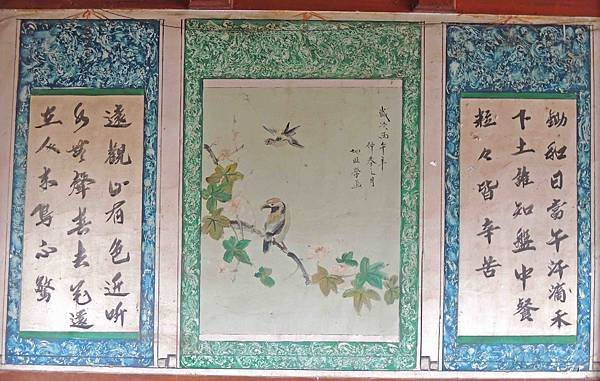 鋤和日當午汗滴禾
下土誰知盤中餐
粒々皆辛苦
歲次丙午年
仲春之月
遠觀山有色近听
水無聲春去花還
在人來鳥不驚